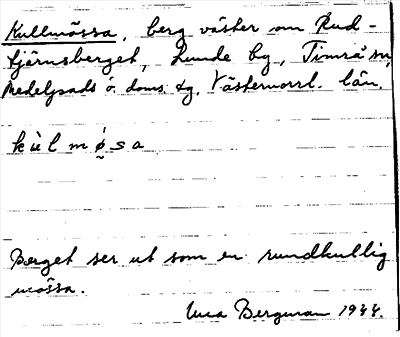 Kullmössa, berg väster om Rud-
tjärnsberget, Lunde by, Timrå sn,
Medelpads ö. doms. tg. Västernorrl. län.
kùlmø̀sa
Berget ser ut som en rundkullig
mössa.
Bergman 1944.